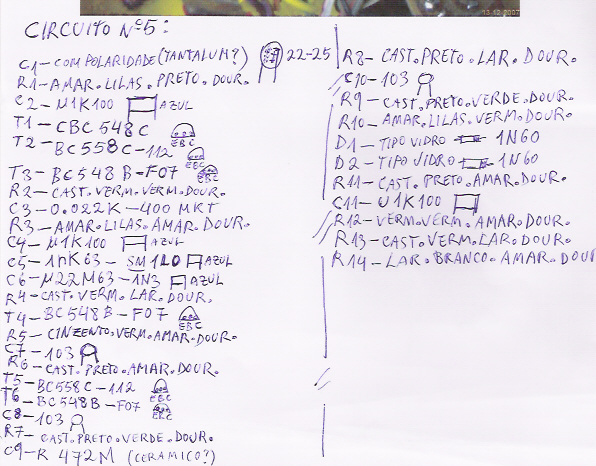 13.12.2007
CIRCUITO Nº5:
C1-COM POLARIDADE (TANTALUM?) 22-25
R1-AMAR. LILAS. PRETO. DOUR.
C2-µ1K100 AZUL
T1-CBC548C
T2-BC558C-112 EBC
T3-BC548B-F07 EBC
R2-CAST. VERM. VERM. DOUR.
C3-0.022K-400 MKT
R3-AMAR. LILAS. AMAR. DOUR.
C4-µ1K100 AZUL
C5-1nK63-SM1L0 AZUL
C6-µ22M63-1N3 AZUL
R4-CAST. VERM. LAR. DOUR.
T4-BC548B-F07 EBC
R5-CINZENTO. VERM. AMAR. DOUR.
C7-103
R6-CAST. PRETO. AMAR. DOUR.
T5-BC558C-112 EBC
T6-BC548B-F07 EBC
C8-103
R7-CAST. PRETO. VERDE. DOUR.
C9-R 472M (CERAMICO?)
R8-CAST. PRETO. LAR. DOUR.
C10-103
R9-CAST. PRETO. VERDE. DOUR.
R10-AMAR. LILAS. VERM. DOUR.
D1-TIPO VIDRO 1N60
D2-TIPO VIDRO 1N60
R11-CAST. PRETO. AMAR. DOUR.
C11-U1K100
R12-VERM. VERM. AMAR. DOUR.
R13-CAST. VERM. LAR. DOUR.
R14-LAR. BRANCO. AMAR. DOUR